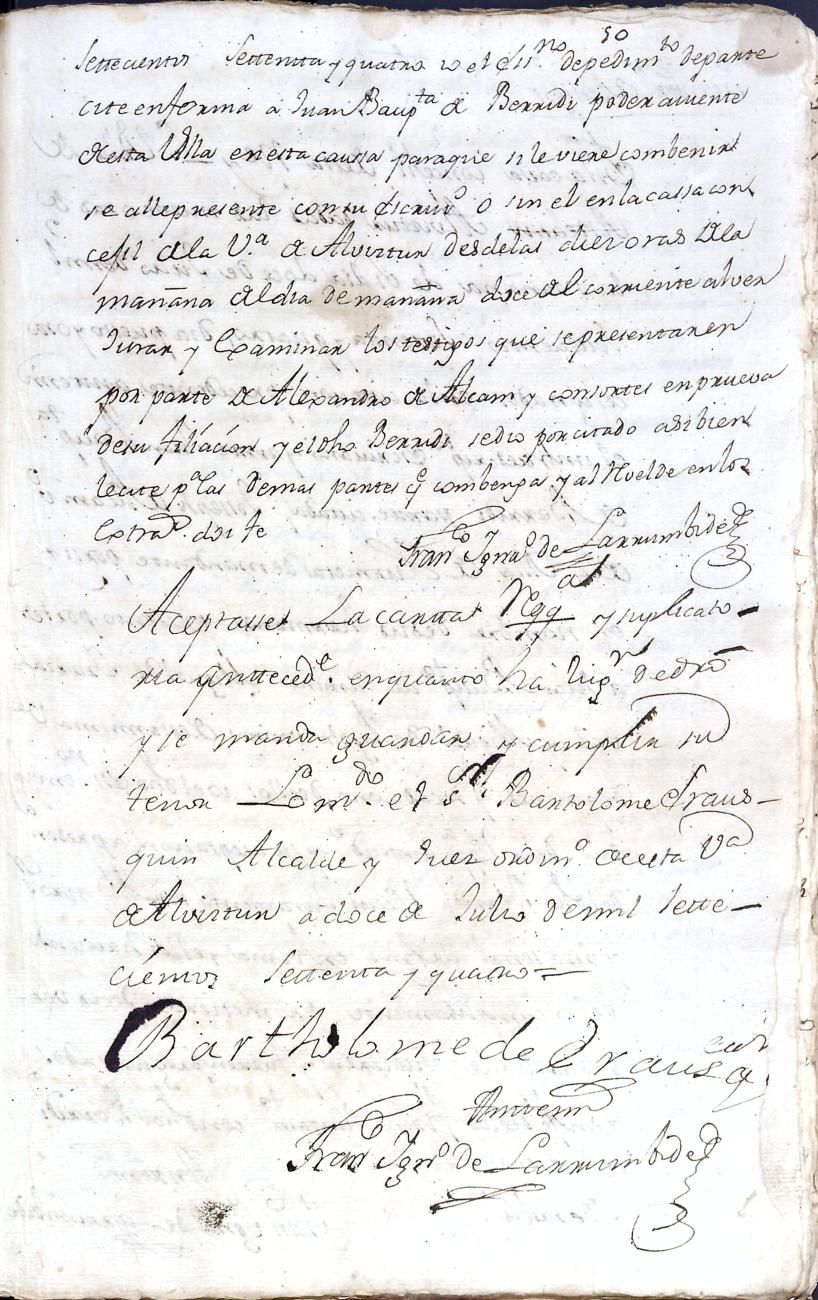 50
settecientos settentta y quatro yo el essno. de pedimto de parte
cite en forma a Juan Baupta de Berridi poder aviente
de esta Villa en esta caussa para que si le viere combenir
se alle presente con su escrivo. o sin el en la cassa con
cejil de la V.a de Alvistur desde las diez oras de la
mañana del dia de mañana doce del corriente al ver
Jurar y Examinar los testigos que se presentaren
por parte de Alexandro de Alcain y consortes en prueva
de su filiación y el dho Berridi se dio por citado asi bien
le cite pa las demas partes qe combenga y al Huelde en los
Extrads. doi fe
Franco Ignao de Larrumbide
Aceptasse La cartta Reqqa y suplicato-
ria antteced.e en quanto há lugr de dro
y se manda guardar y cumplir su
tenor Lo mdo. el sr. Bartolome de Iraus-
quin Alcalde y Juez ordino de esta Va
de Alvistur a doce de Julio de mil sette-
cientos settenta y quatro =
Bartholome de Yrausq
uin
Antemi
Franco Ignо de Larrumbide